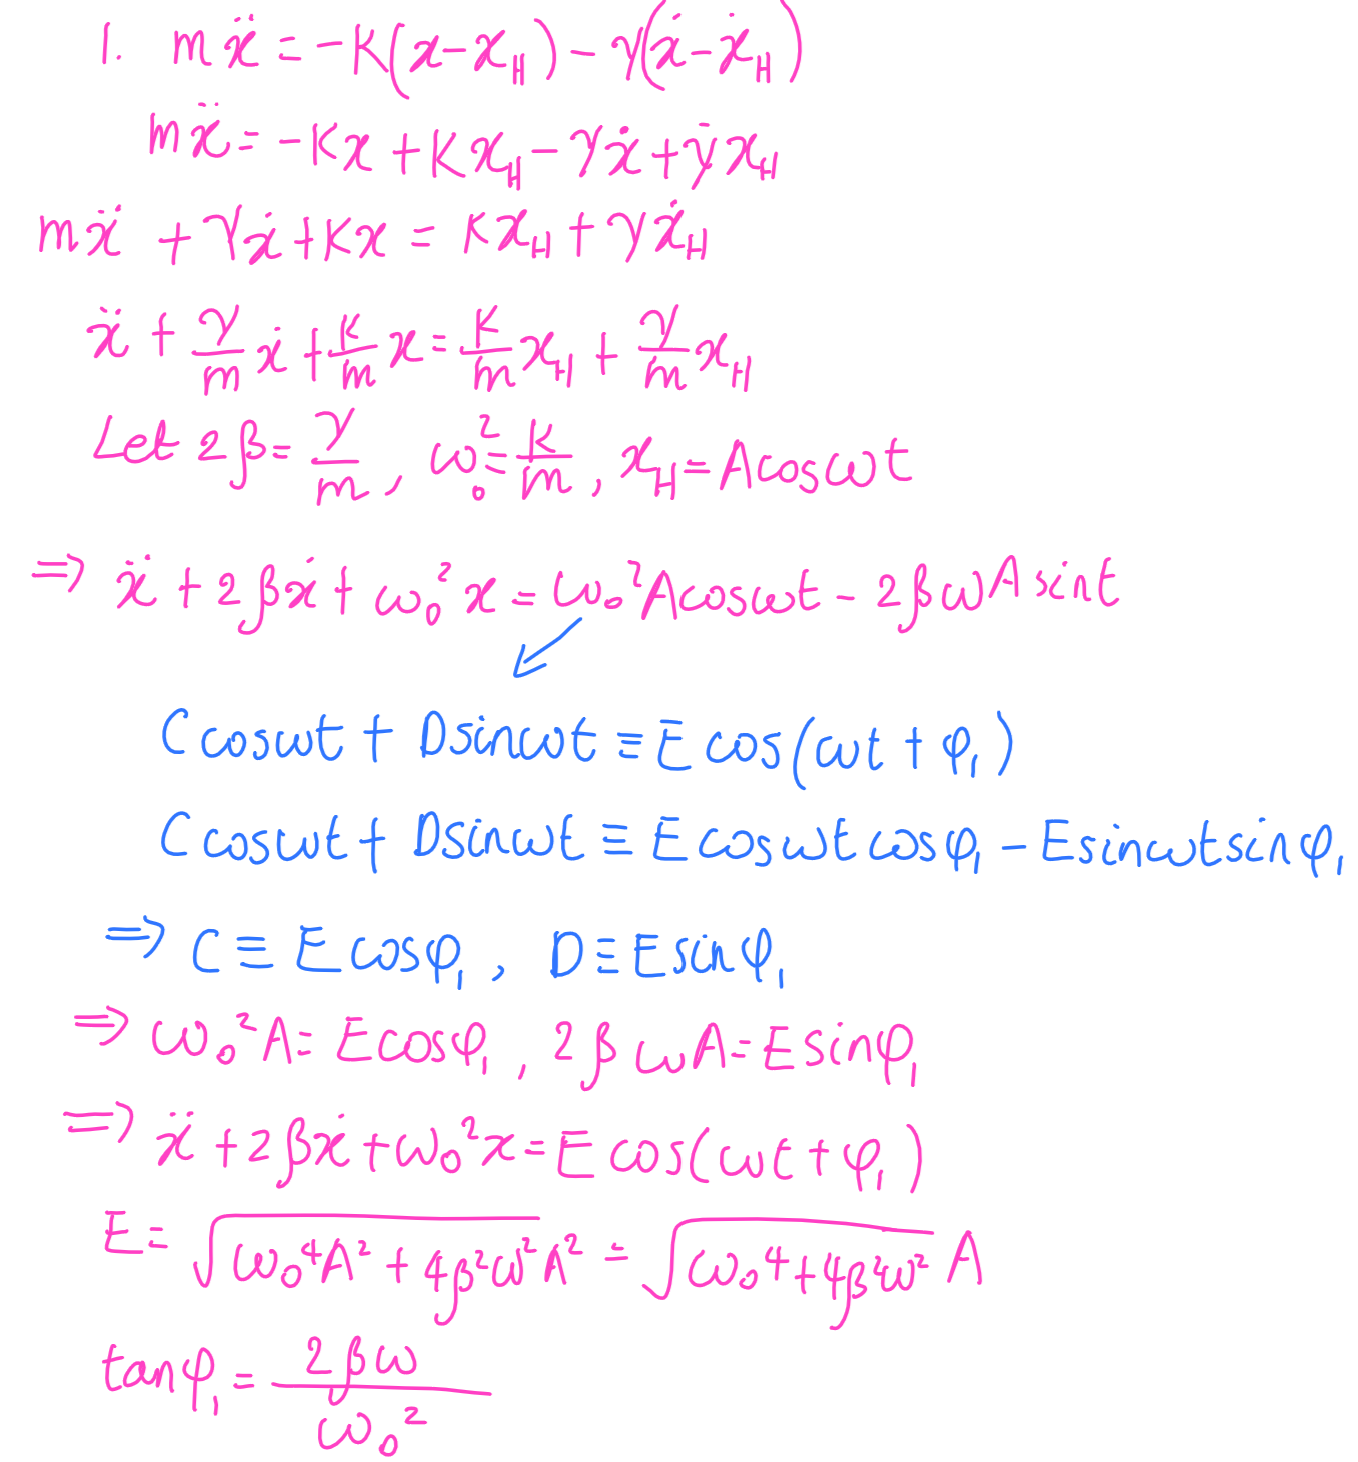 1. mẍ = -K(x-x_H) - γ(ẋ-ẋ_H)
mẍ = -Kx + Kx_H - γẋ + γ̇x_H
mẍ + γẋ + Kx = Kx_H + γẋ_H
ẍ + γ/m ẋ + K/m x = K/m x_H + γ/m x_H
Let 2β = γ/m, ω₀² = K/m, x_H = Acosωt
⇒ ẍ + 2βẋ + ω₀²x = ω₀²Acosωt - 2βωAsint
Ccosωt + Dsinωt ≡ Ecos(ωt + φ₁)
Ccosωt + Dsinωt ≡ Ecosωtcosφ₁ - Esinωtsinφ₁
⇒ C ≡ Ecosφ₁, D ≡ Esinφ₁
⇒ ω₀²A = Ecosφ₁, 2βωA = Esinφ₁
⇒ ẍ + 2βẋ + ω₀²x = Ecos(ωt + φ₁)
E = √(ω₀⁴A² + 4β²ω²A²) = √(ω₀⁴ + 4β²ω²) A
tanφ₁ = 2βω/ω₀²